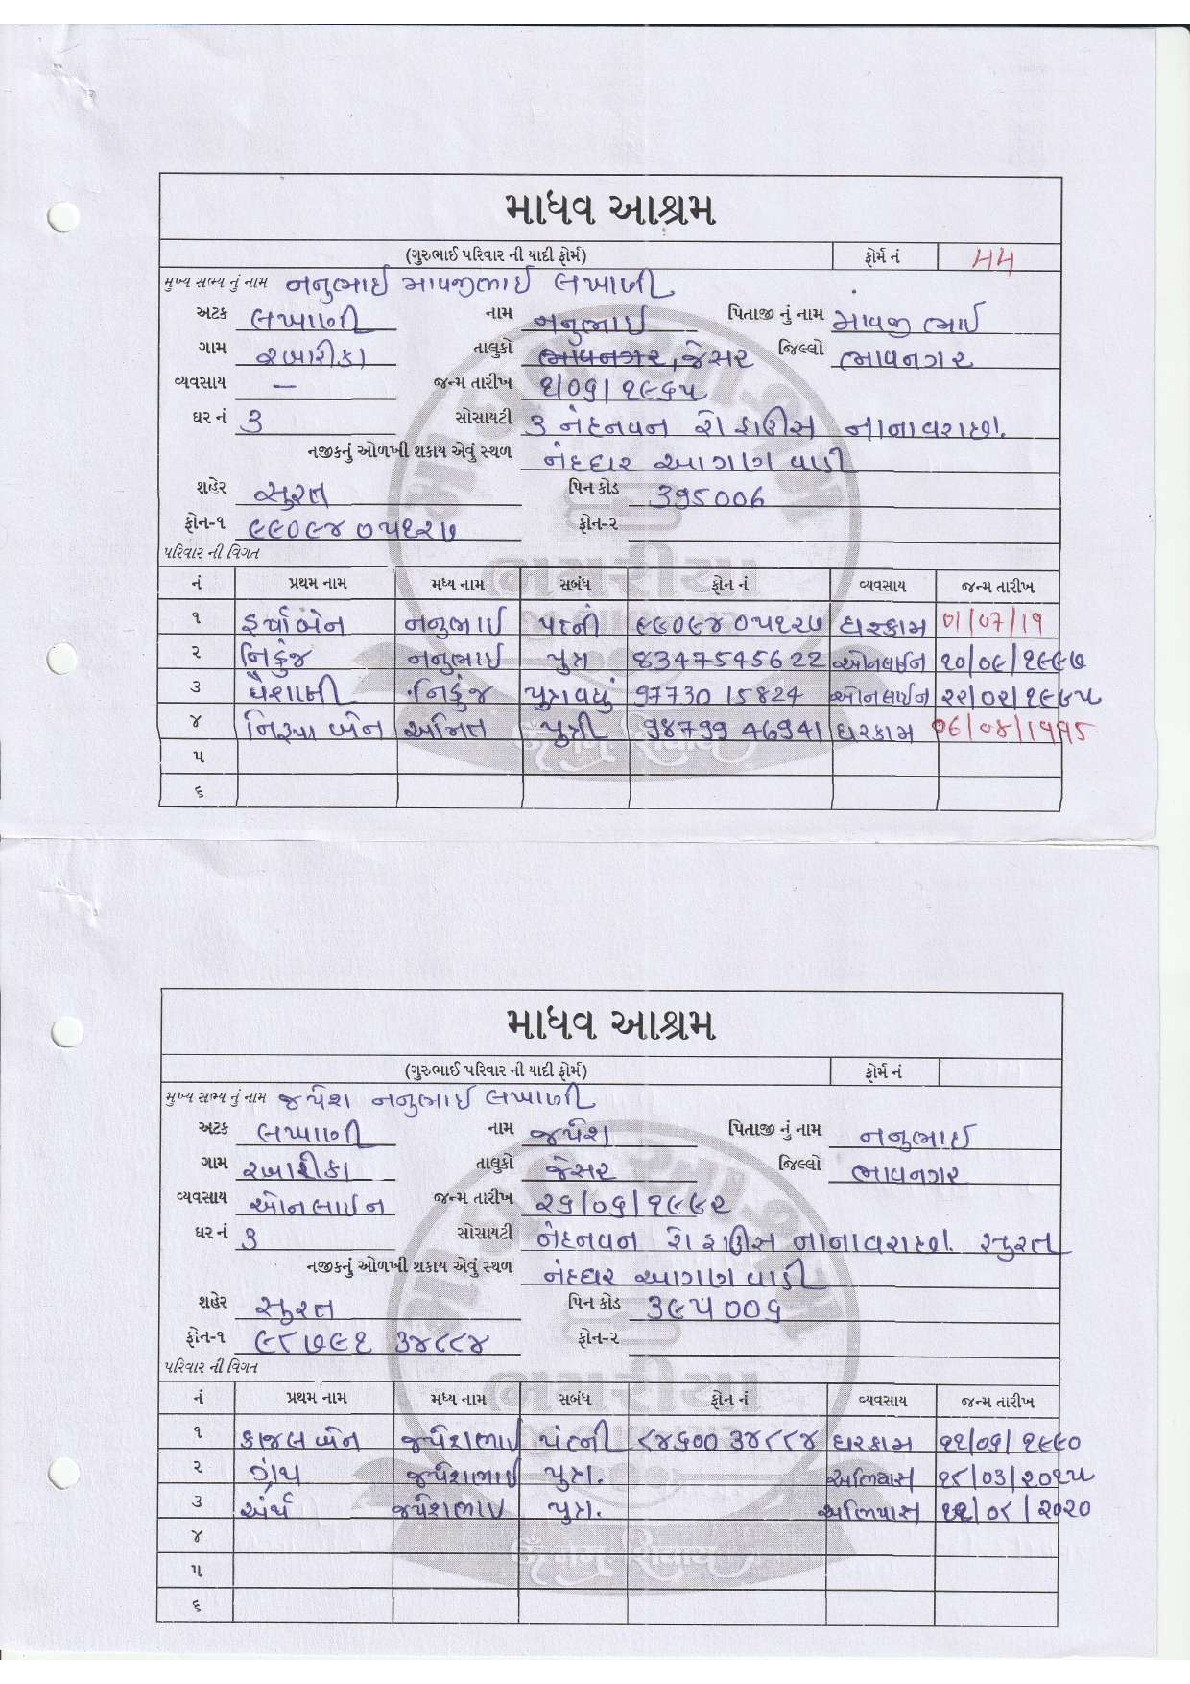 માધવ આશ્રમ
(ગુરુભાઈ પરિવાર ની યાદી ફોર્મ) ફોર્મ નં
મુખ્ય સભ્ય નું નામ નનુભાઈ માવજીભાઈ લખાણી
અટક લખાણી નામ નનુભાઈ પિતાજી નું નામ માવજીભાઈ
ગામ રબારીકા તાલુકો ભાવનગર, જેસર જિલ્લો ભાવનગર
વ્યવસાય — જન્મ તારીખ ૧/૦૬/૧૯૬૫
ઘર નં ૩ સોસાયટી ૩ નંદનવન રો હાઉસ નાનાવરાછા.
નજીકનું ઓળખી શકાય એવું સ્થળ નંદદ્વાર આગળ વાડી
શહેર સુરત પિન કોડ 395006
ફોન-૧ ૯૯૦૯૪ ૦૫૧૨૭ ફોન-૨
પરિવાર ની વિગત
નં પ્રથમ નામ મધ્ય નામ સબંધ ફોન નં વ્યવસાય જન્મ તારીખ
૧ નનુભાઈ પત્ની ૯૯૦૯૪ ૦૫૧૨૭ ઘરકામ 01/07/19
૨ નિકુંજ નનુભાઈ પુત્ર 83475 45622 ઓનલાઈન ૧૦/૦૯/૧૯૯૭
૩ વૈશાલી નિકુંજ પુત્રવધું 97730 15824 ઓનલાઈન ૨૨/૦૨/૧૯૯૫
૪ બેન અમિત પુત્રી 98799 46941 ઘરકામ 06/04/1995
૫
૬
માધવ આશ્રમ
(ગુરુભાઈ પરિવાર ની યાદી ફોર્મ) ફોર્મ નં
મુખ્ય સભ્ય નું નામ જયેશ નનુભાઈ લખાણી
અટક લખાણી નામ જયેશ પિતાજી નું નામ નનુભાઈ
ગામ રબારીકા તાલુકો જેસર જિલ્લો ભાવનગર
વ્યવસાય ઓનલાઈન જન્મ તારીખ ૨૬/૦૬/૧૯૯૨
ઘર નં ૩ સોસાયટી નંદનવન રો હાઉસ નાનાવરાછા. સુરત
નજીકનું ઓળખી શકાય એવું સ્થળ નંદદ્વાર આગળ વાડી
શહેર સુરત પિન કોડ ૩૯૫૦૦૬
ફોન-૧ ૯૮૭૯૧ ૩૪૮૮૪ ફોન-૨
પરિવાર ની વિગત
નં પ્રથમ નામ મધ્ય નામ સબંધ ફોન નં વ્યવસાય જન્મ તારીખ
૧ કાજલબેન જયેશભાઈ પત્ની ૮૪૬૦૦ ૩૪૮૮૪ ઘરકામ ૧૧/૦૬/૧૯૯૦
૨ જયેશભાઈ પુત્ર. અભ્યાસ ૧૮/૦૩/૨૦૧૫
૩ જયેશભાઈ પુત્ર. અભ્યાસ
૪
૫
૬